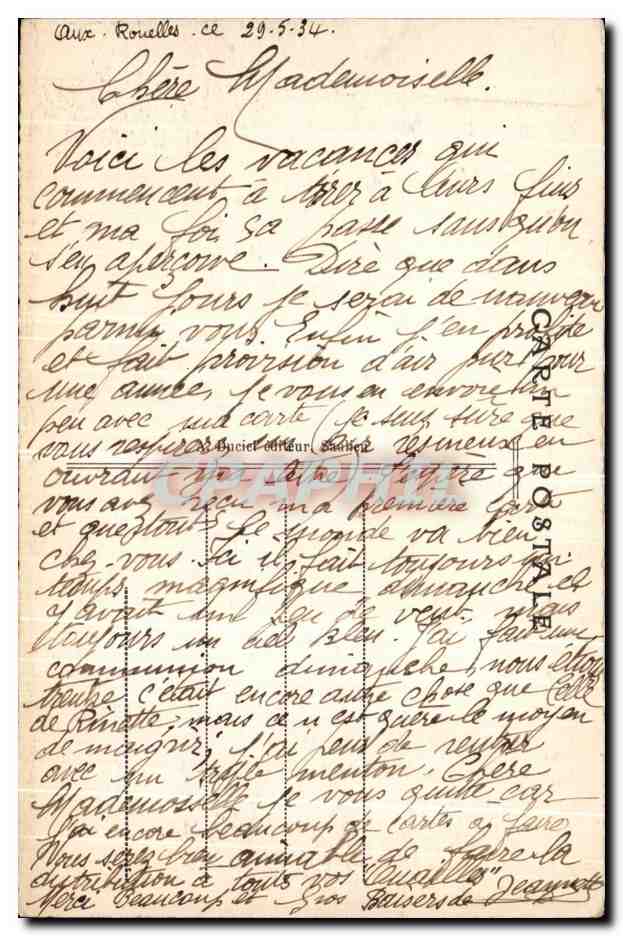 Aux. Rouelles. ce 29.5.34.
Chère Mademoiselle.
Voici les vacances qui
commencent à tirer à leurs fins
et ma foi, ça passe sans qu'on
s'en aperçoive. Dire que dans
huit jours je serai de nouveau
parmi vous. Enfin j'en profite
et fait provision d'air pur pour
une année, je vous en envoie un
peu avec ma carte (je suis sûre que
vous respirer l'air résineux en
A. Bucier éditeur, Saulieu
ouvrant ma lettre) J'espère que
vous avez reçu ma première carte
et que tout le monde va bien
chez-vous. Ici il fait toujours un
temps magnifique, dimanche il
y avait un peu de vent, mais
toujours un ciel bleu. J'ai fait une
communion dimanche, nous étions
trente c'était encore autre chose que celle
de Rinette, mais ce n'est guère le moyen
de maigrir, j'ai peur de rentrer
avec un triple menton. Chère
Mademoiselle je vous quitte car
j'ai encore beaucoup de cartes à faire
Vous serez bien aimable de faire la
distribution à toutes vos "Ouailles"
Merci beaucoup et gros Baisers de Jeannette
CARTE POSTALE
CPAPHIL